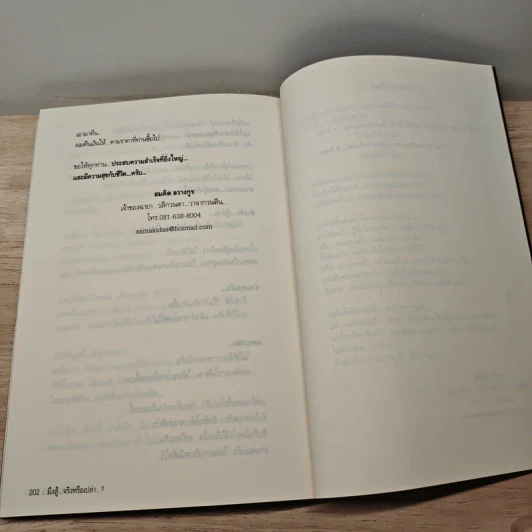 เอามาคืน...
ผมคืนเงินให้...ตามราคาที่ท่านซื้อไป
ขอให้ทุกท่าน...ประสบความสำเร็จที่ยิ่งใหญ่...
และมีความสุขกับชีวิต...ครับ...
สมคิด ลวางกูร
เจ้าของฉายา...วลีกวนตา...วาจากวนตีน...
โทร.081-638-8004
samakidas@hotmail.com
202 : มึงสู้...จริงหรือเปล่า...?